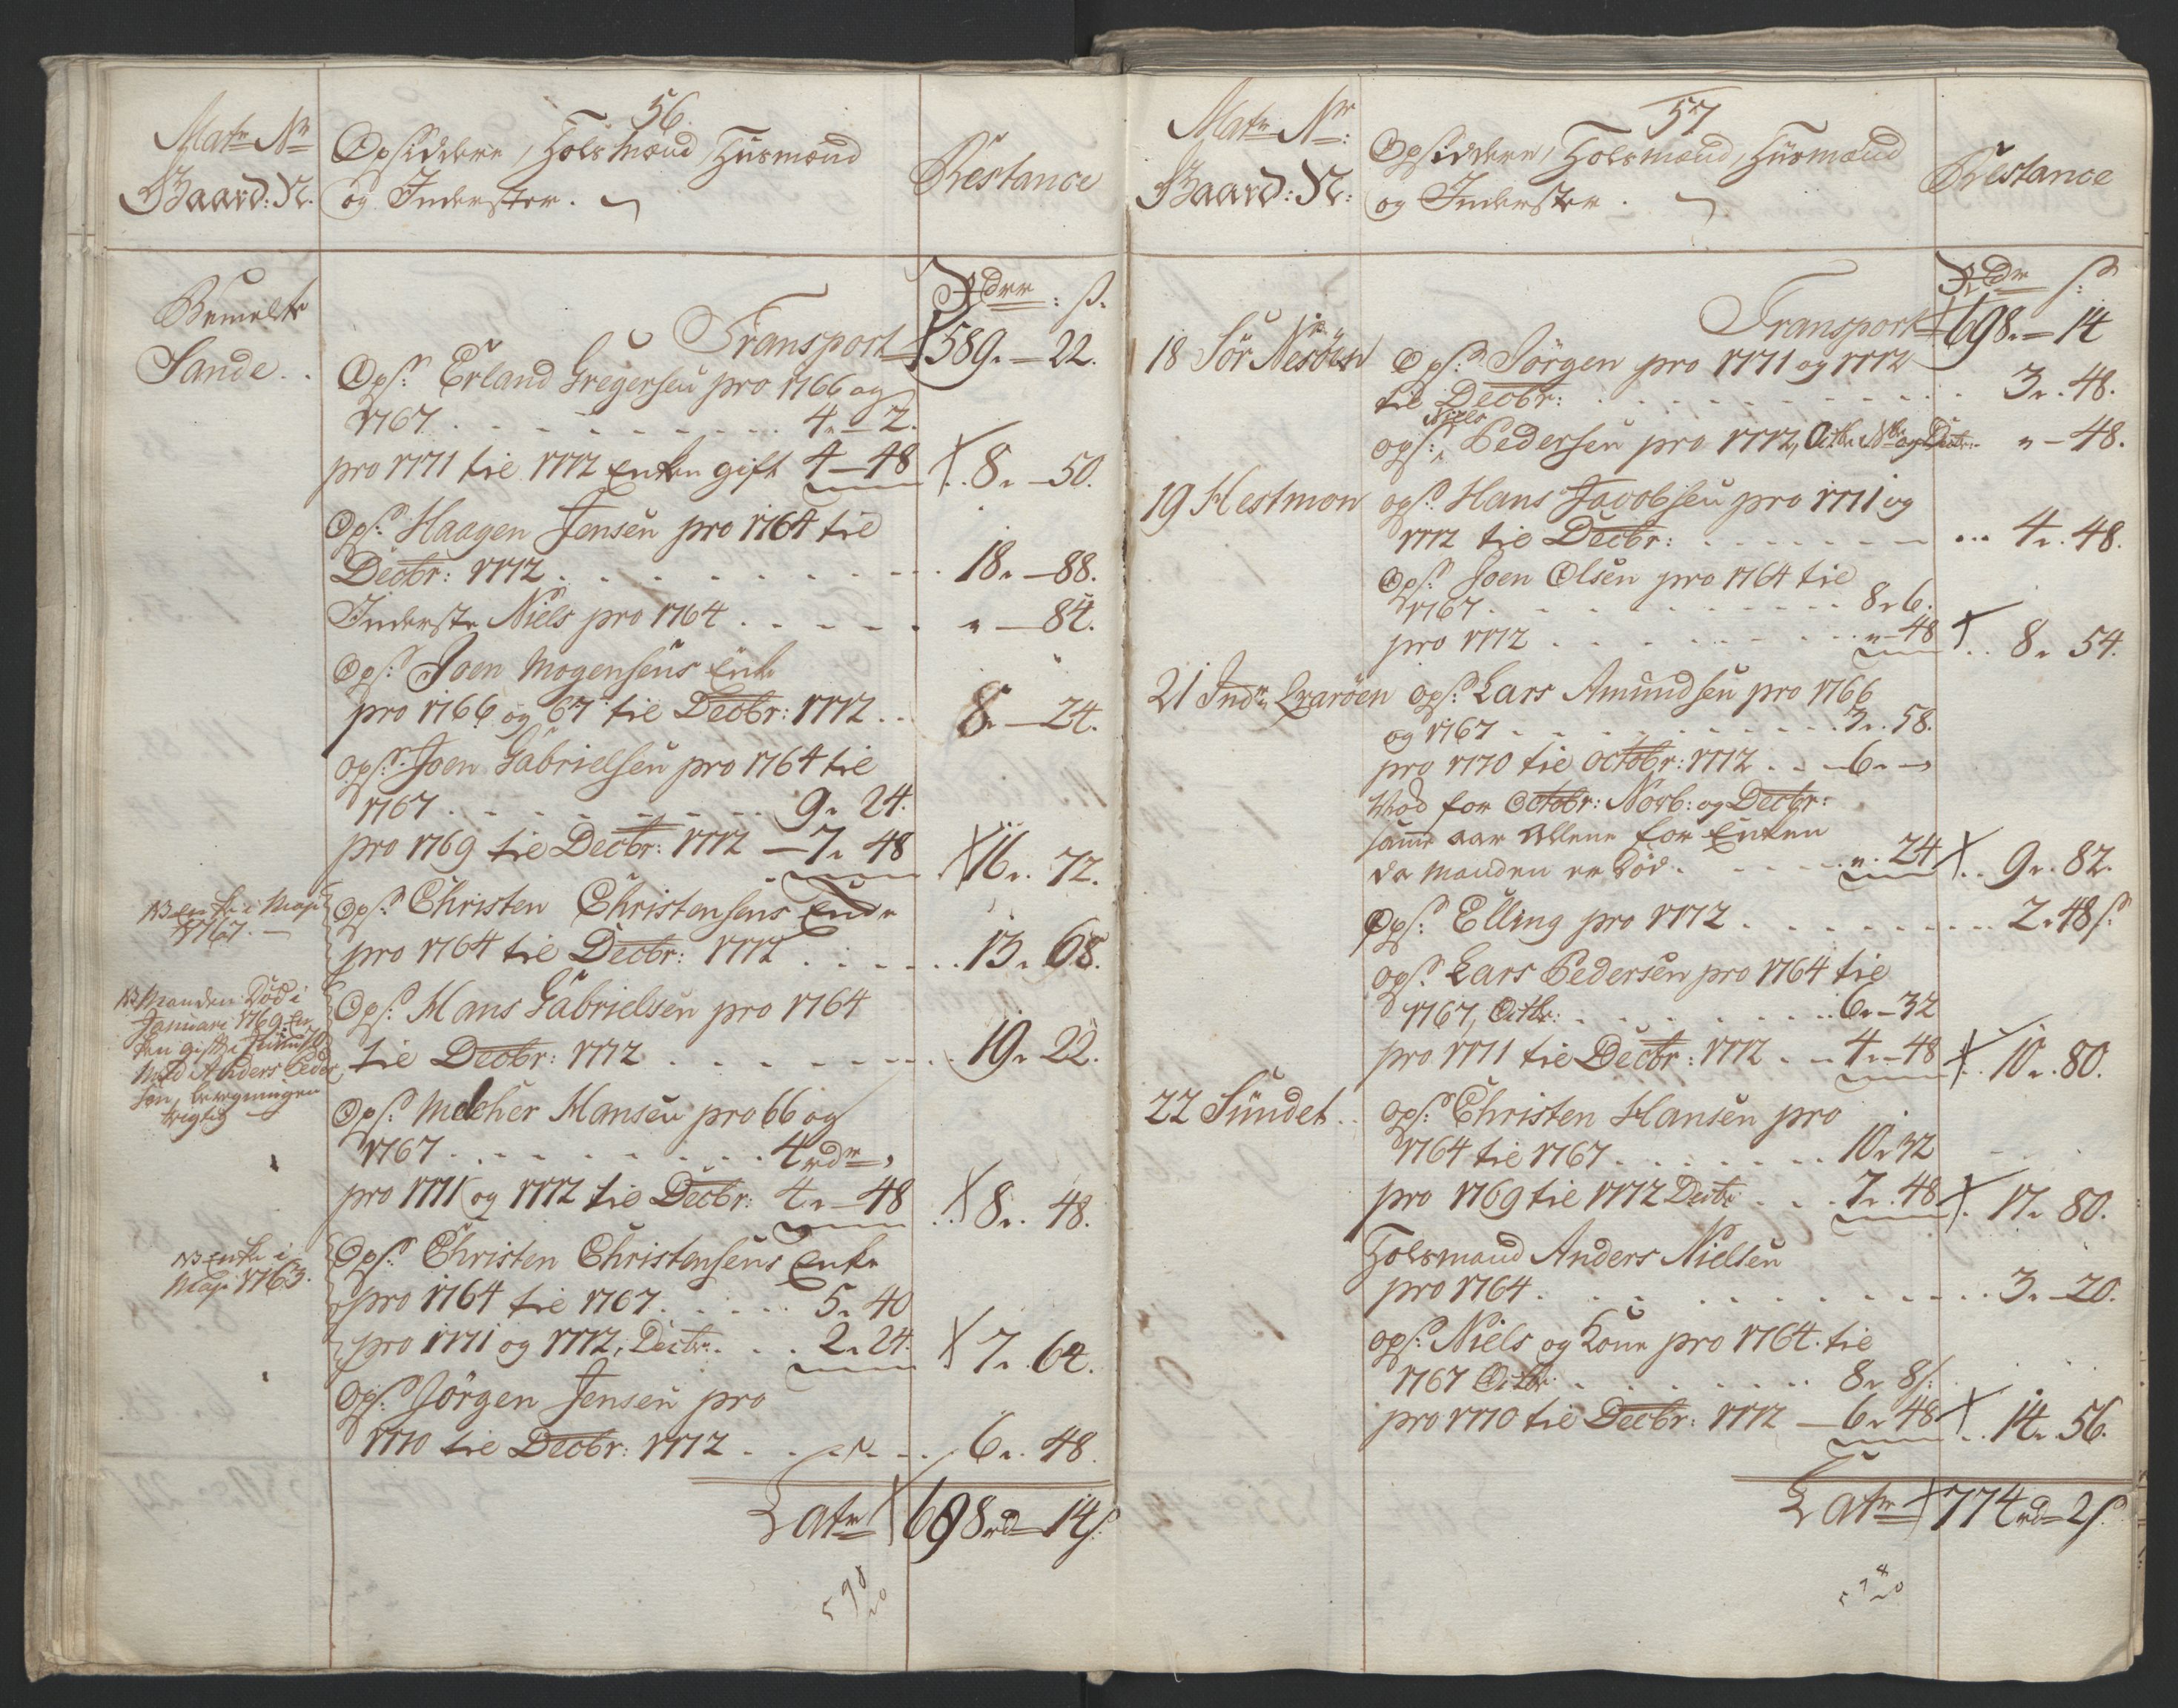 56.
Matr: Nr:
Gaard: N:
Opsiddere, Holsmænd, Huusmænd
og Inderster.
Restance
Rdr: s:
Bemelte
Sande
Transport 589 - 22.
Ops: Erland Gregersen pro 1766 og
1767 4 - 2.
pro 1771 til 1772 Enken gift 4 - 48 8 - 50.
Ops: Haagen Jensen pro 1764 til
Decbr: 1772 18 - 88.
Inderste Niels pro 1764 " - 84.
Ops: Joen Mogensens Enke
pro 1766 og 67 til Decbr: 1772 8 - 24.
Ops: Joen Gabrielsen pro 1764 til
1767 9 - 24.
pro 1769 til Decbr: 1772 - 7 - 48 16 - 72.
NB Enke i Maji
1767.
Ops: Christen Christensens Enke
pro 1764 til Decbr: 1772 13 - 68.
NB Manden Død i
Januari 1769. En-
ken gift i
Med Anders Peder
sen,
rigtig
Ops: Hans Gabrielsen pro 1764
til Decbr: 1772 19 - 22.
Ops: Melcher Hansen pro 66 og
1767 4 rdr
pro 1771 og 1772 til Decbr: 4 - 48 8 - 48.
NB Enke i
Maji 1763.
Ops: Christen Christensens Enke
pro 1764 til 1767 5 - 40
pro 1771 og 1772, Decbr. 2 - 24. 7 - 64.
Ops: Jörgen Jensen pro
1770 til Decbr: 1772 6 - 48.
Latr: 698 rd 14 s:
57
Matr: Nr:
Gaard: N:
Opsiddere, Holsmænd, Huusmænd
og Inderster.
Restance
Rdr s:
Transport 698 - 14
18 Sör Nesöen Ops: Jörgen pro 1771 og 1772
til Decbr: 3 - 48.
ops: Niels Pedersen pro 1772, Octbr. Nbr. og Decbr: " - 48.
19 Hestmon ops: Hans Jacobsen pro 1771 og
1772 til Decbr: 4 - 48.
Ops: Joen Olsen pro 1764 til
1767 8 - 6.
pro 1772 " - 48 8 - 54.
21 Indr Qvaröen Ops: Lars Amundsen pro 1766
og 1767 3 - 58.
pro 1770 til octobr: 1772 6 -
Mod for Octobr: Novb: og Decbr:
samme aar Allene for Enken
da Manden er Død. " 24 9 - 82.
Ops: Elling pro 1772 2 - 48 s:
ops: Lars Pedersen pro 1764 til
1767, Octbr: 6 - 32
pro 1771 til Decbr: 1772 4 - 48 10 - 80.
22 Sundet. ops: Christen Hansen pro
1764 til 1767 10 - 32
pro 1769 til 1772 Decbr 7 - 48 17 - 80.
Holsmand Anders Nielsen
pro 1764 3 - 20.
ops: Niels og Kone pro 1764 til
1767 Octbr. 8 - 8 s:
pro 1770 til Decbr: 1772 - 6 - 48 14 - 56.
Latr: 774 rd 2 s: